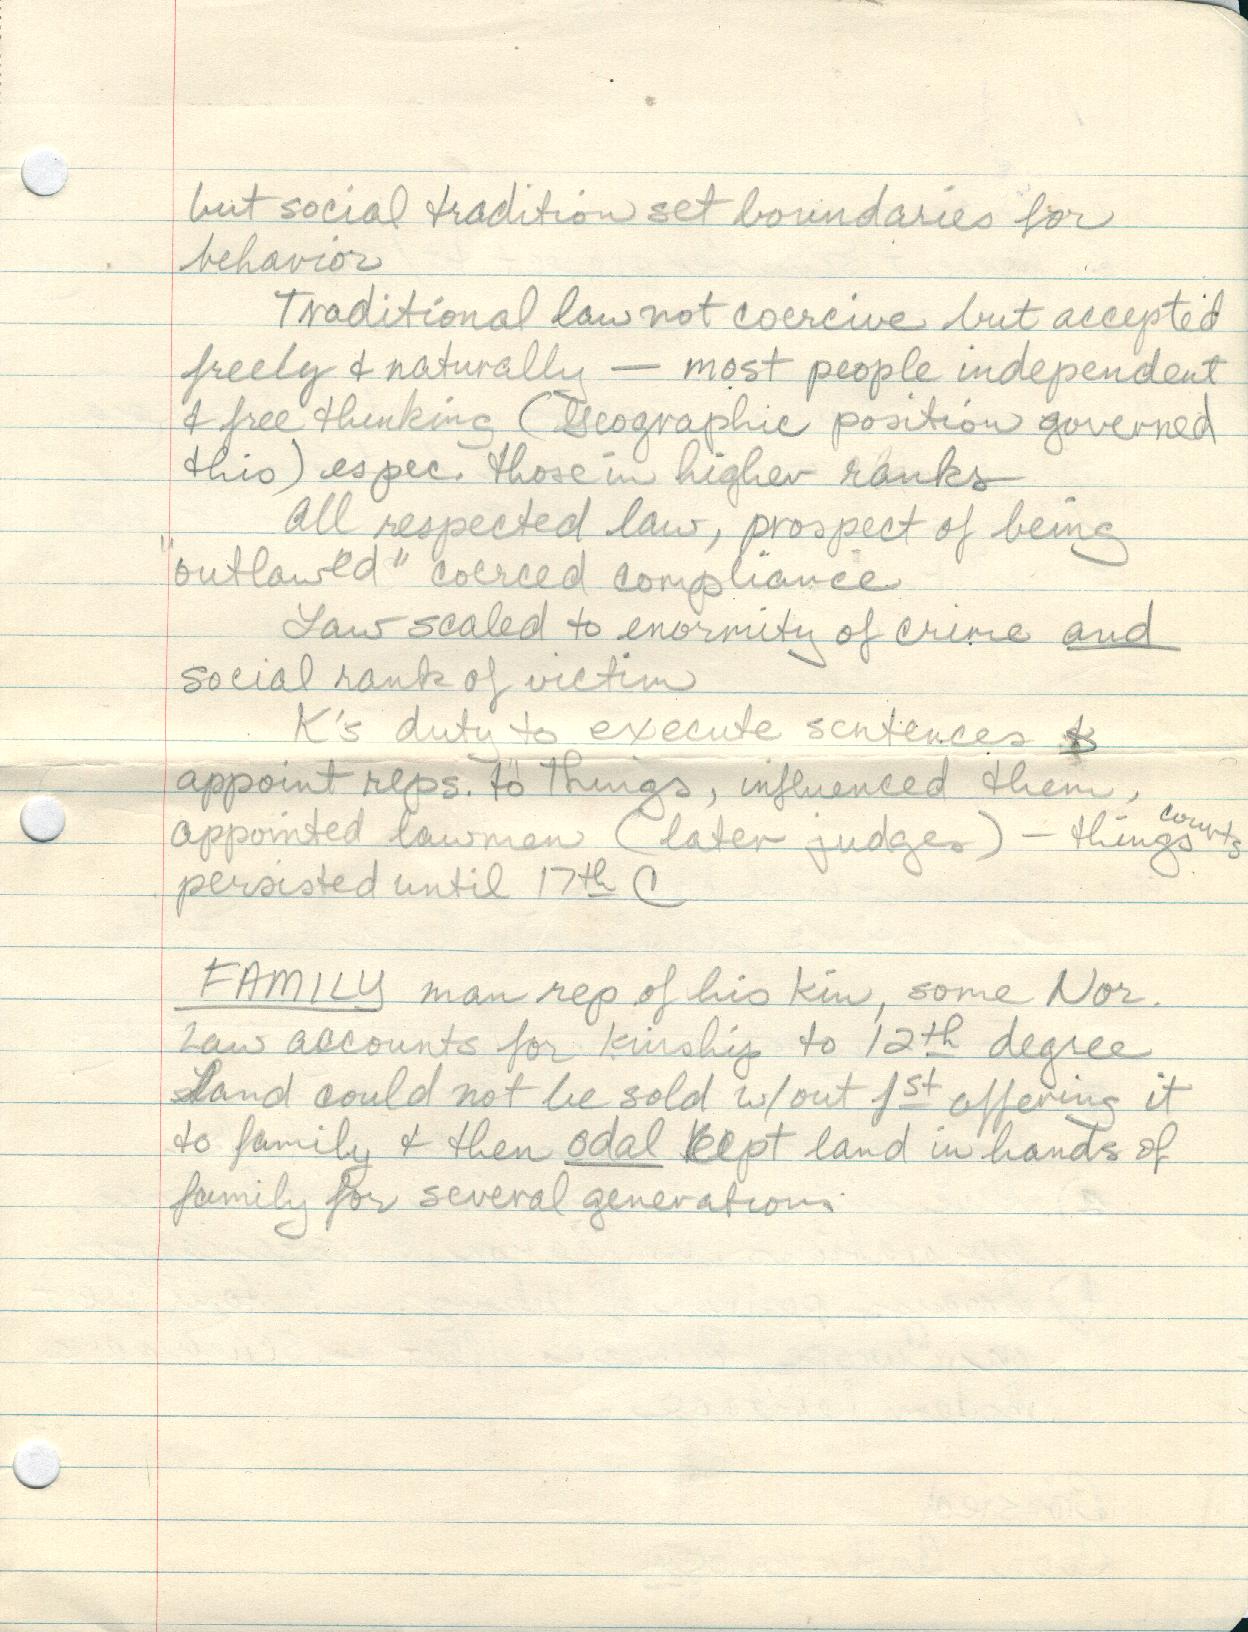 but social tradition set boundaries for
behavior
Traditional law not coercive but accepted
freely & naturally — most people independent
& free thinking (Geographic position governed
this) espec. those in higher ranks
All respected law, prospect of being
"outlawed" coerced compliance
Law scaled to enormity of crime and
social rank of victim
K's duty to execute sentences &
appoint reps. to Things, influenced them,
appointed lawmen (later judges) — things courts
persisted until 17th C
FAMILY man rep of his kin, some Nor.
Law accounts for kinship to 12th degree
Land could not be sold w/out 1st offering it
to family & then odal kept land in hands of
family for several generations.